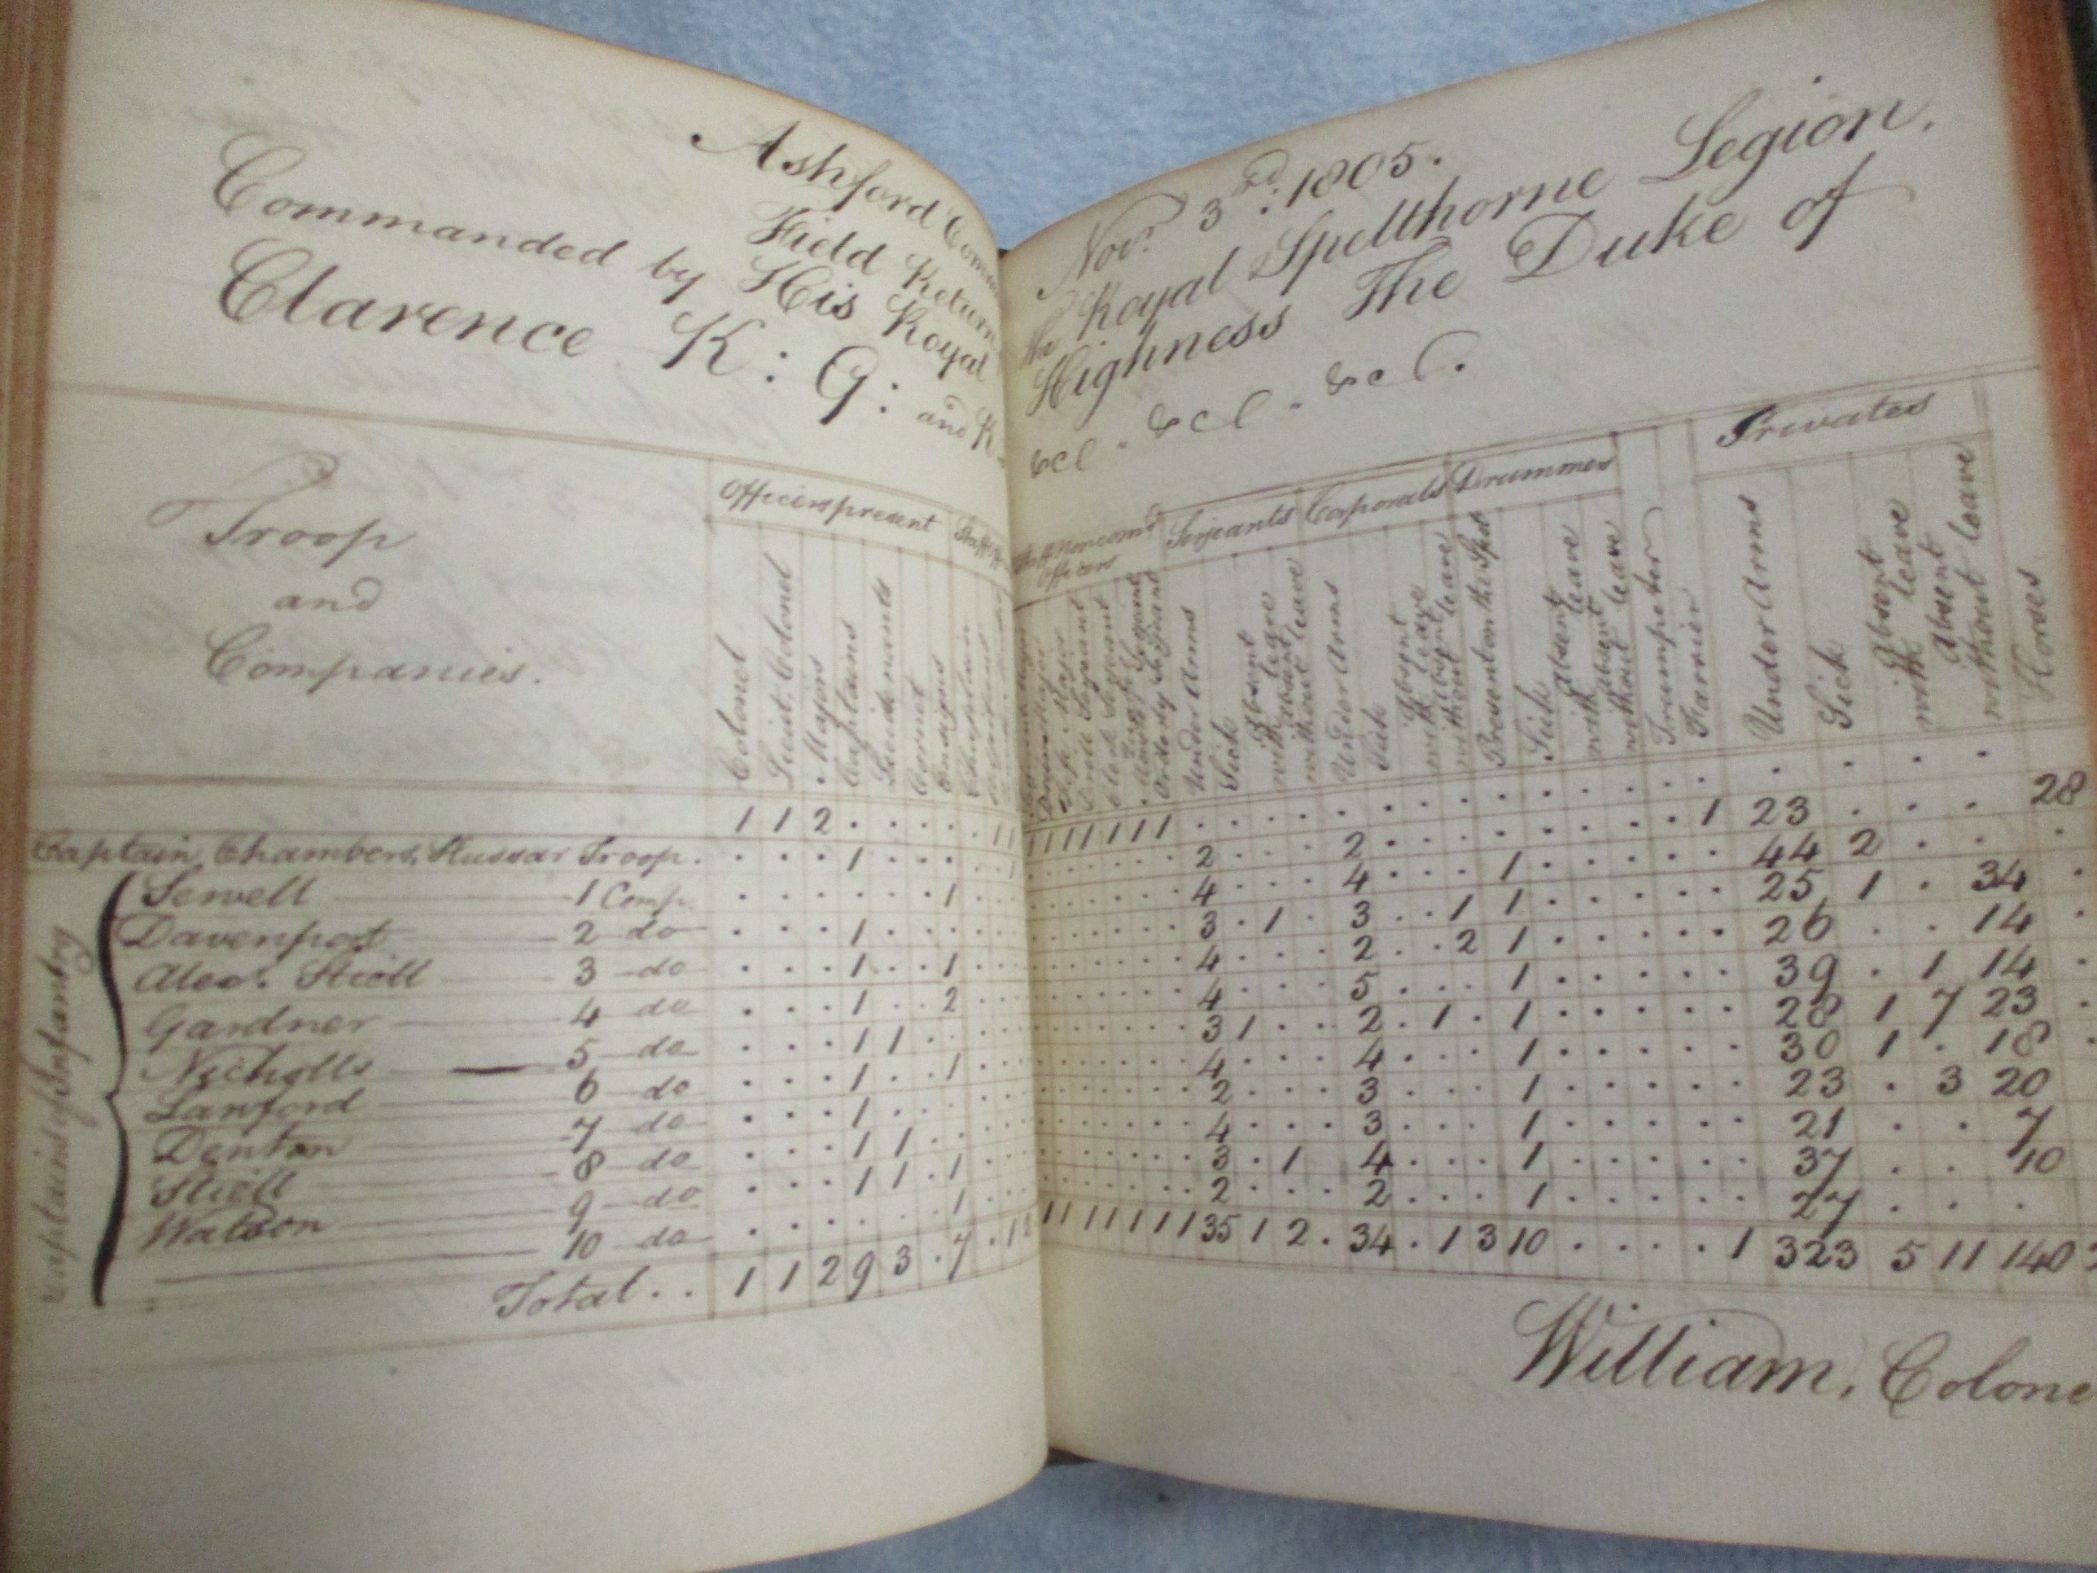 Ashford Nov.r 3rd: 1805.
Field Return the Royal Spelthorne Legion,
Commanded by His Royal Highness The Duke of
Clarence K: G: and K &c &c &c.
Troop
and
Companies.
Officers present
Serjeants Corporals Drummer Privates
Colonel
Lieut. Colonel
Majors
Captains
Lieutenants
Cornet
Ensigns
Chaplain
Under Arms
Sick
Absent with leave
Absent without leave
Under Arms
Sick
Absent with leave
Absent without leave
Present on the Spot
Sick
Absent with leave
Absent without leave
Trumpeter
Farrier
Under Arms
Sick
Absent with leave
Absent without leave
Horses
1 1 2 . . . . . 1 1 1 1 1 1 1 1
Captain Chambers, Hussar Troop. . . . 1 . . . . 2 . . . 2 . . . . . . . . 1 23 . . . 28
Captains of Infantry
Sewell 1 Comp. . . . . . . 1 4 . . . 4 . . . 1 . . . . . 44 2 . . .
Davenport 2 do . . . 1 . . . 3 . 1 . 3 . . 1 1 . . . . . 25 1 . 34 .
3 do . . . 1 . . 1 4 . . . 2 . . 2 1 . . . . . 26 . . 14 .
Gardner 4 do . . . 1 . . 2 4 . . . 5 . . . 1 . . . . . 39 . 1 14 .
Nicholls 5 do . . . 1 1 . . 3 1 . . 2 . 1 . 1 . . . . . 28 1 7 23 .
Lanford 6 do . . . 1 . . 1 4 . . . 4 . . . 1 . . . . . 30 1 . 18 .
Denton 7 do . . . 1 . . . 2 . . . 3 . . . 1 . . . . . 23 . 3 20
8 do . . . 1 1 . . 4 . . . 3 . . . 1 . . . . . 21 . . 7
Watson 9 do . . . 1 1 . 1 3 . 1 . 4 . . . 1 . . . . . 37 . . 10
10 do . . . . . . 1 2 . . . 2 . . . 1 . . . . . 27 . . .
Total . . 1 1 2 9 3 . 7 . 1 1 1 1 1 1 1 1 35 1 2 . 34 . 1 3 10 . . . . 1 323 5 11 140
William, Colone